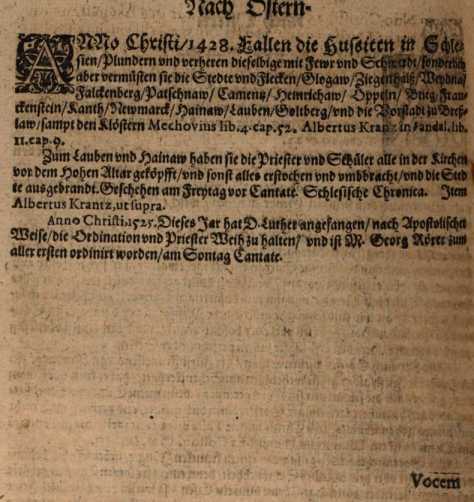 Nach Ostern.
ANNo Christi/1428. Fallen die Hussiten in Schle-
sien/Plundern vnd verheren dieselbige mit Fewr vnd Schwerdt/sonderlich
aber verwüsten sie die Stedte vnd Flecken/Glogaw/Ziegenhalß/Weydna/
Falckenberg/Patschnaw/Camentz/Heinrichaw/Oppeln/Brieg/Fran-
ckenstein/Kanth/Newmarck/Hainaw/Lauben/Goltberg/vnd die Vorstadt zu Breß-
law/sampt den Klöstern Mechovius lib. 4. cap. 52. Albertus Krantz in Vandal. lib.
11. cap. 9.
Zum Lauben vnd Hainaw haben sie die Priester vnd Schüler alle in der Kirchen
vor dem Hohen Altar geköpfft/vnd sonst alles erstochen vnd vmbbracht/vnd die Sted
te ausgebrandt. Geschehen am Freytag vor Cantate. Schlesische Chronica. Item
Albertus Krantz, ut supra.
Anno Christi. 1525. Dieses Jar hat D. Luther angefangen/nach Apostolischer
Weise/die Ordination vnd Priester Weih zu halten/ vnd ist M. Georg Rörer zum
aller ersten ordinirt worden/am Sontag Cantate.
Vocem